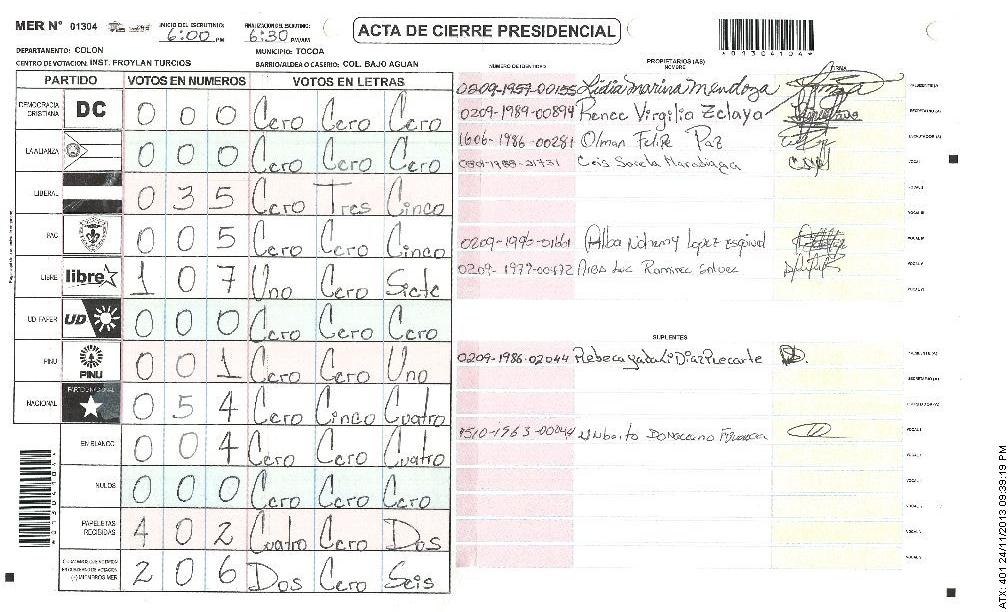 MER N° 01304
INICIO DEL ESCRUTINIO: 6:00 PM
FINALIZACION DEL ESCRUTINIO: 6:30 PM/AM
ACTA DE CIERRE PRESIDENCIAL
*01304104*
DEPARTAMENTO: COLON
MUNICIPIO: TOCOA
CENTRO DE VOTACION: INST. FROYLAN TURCIOS
BARRIO/ALDEA O CASERIO: COL. BAJO AGUAN
PARTIDO VOTOS EN NUMEROS VOTOS EN LETRAS
DEMOCRACIA CRISTIANA DC 0 0 0 Cero Cero Cero
LA ALIANZA 0 0 0 Cero Cero Cero
LIBERAL 0 3 5 Cero Tres Cinco
PAC 0 0 5 Cero Cero Cinco
LIBRE libre 1 0 7 Uno Cero Siete
UD FAPER UD 0 0 0 Cero Cero Cero
PINU PINU 0 0 1 Cero Cero Uno
NACIONAL PARTIDO NACIONAL 0 5 4 Cero Cinco Cuatro
EN BLANCO 0 0 4 Cero Cero Cuatro
NULOS 0 0 0 Cero Cero Cero
PAPELETAS RECIBIDAS 4 0 2 Cuatro Cero Dos
(+) MIEMBROS MER 2 0 6 Dos Cero Seis
PROPIETARIOS (AS)
NUMERO DE IDENTIDAD NOMBRE FIRMA
0209-1959-00155 Lidia marina mendoza
0209-1989-00894 Renee Virgilia Zelaya
1606-1986-00281 Olman Felipe Paz
0209-1990-01661 Alba Nohemy Lopez Esquivel
0209-1979-00472 Ramirez
SUPLENTES
0209-1986-02044 Rebeca
1510-1963-00044
ATX: 401 24/11/2013 09:39:19 PM